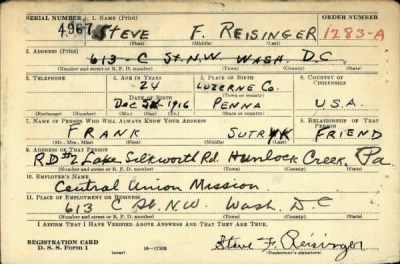 SERIAL NUMBER 1. NAME (Print) ORDER NUMBER
4967 STEVE F. REISINGER 1283-A
(First) (Middle) (Last)
2. ADDRESS (Print)
613-C ST. N.W. WASH. D.C.
(Number and street or R. F. D. number) (Town) (County) (State)
3. TELEPHONE 4. AGE IN YEARS 5. PLACE OF BIRTH 6. COUNTRY OF CITIZENSHIP
24 LUZERNE CO.
DATE OF BIRTH (Town or county)
DEC 1916 PENNA U.S.A.
(Exchange) (Number) (Mo.) (Day) (Yr.) (State or country)
7. NAME OF PERSON WHO WILL ALWAYS KNOW YOUR ADDRESS 8. RELATIONSHIP OF THAT PERSON
FRANK FRIEND
(Mr., Mrs., Miss) (First) (Middle) (Last)
9. ADDRESS OF THAT PERSON
R.D #2 Lake Silkworth Rd. Hunlock Creek, Pa.
(Number and street or R. F. D. number) (Town) (County) (State)
10. EMPLOYER'S NAME
Central Union Mission.
11. PLACE OF EMPLOYMENT OR BUSINESS
613 C St. N.W. Wash. D.C
(Number and street or R. F. D. number) (Town) (County) (State)
I AFFIRM THAT I HAVE VERIFIED ABOVE ANSWERS AND THAT THEY ARE TRUE.
REGISTRATION CARD
D. S. S. Form 1 (over) 16-17105 Steve F. Reisinger
(Registrant's signature)